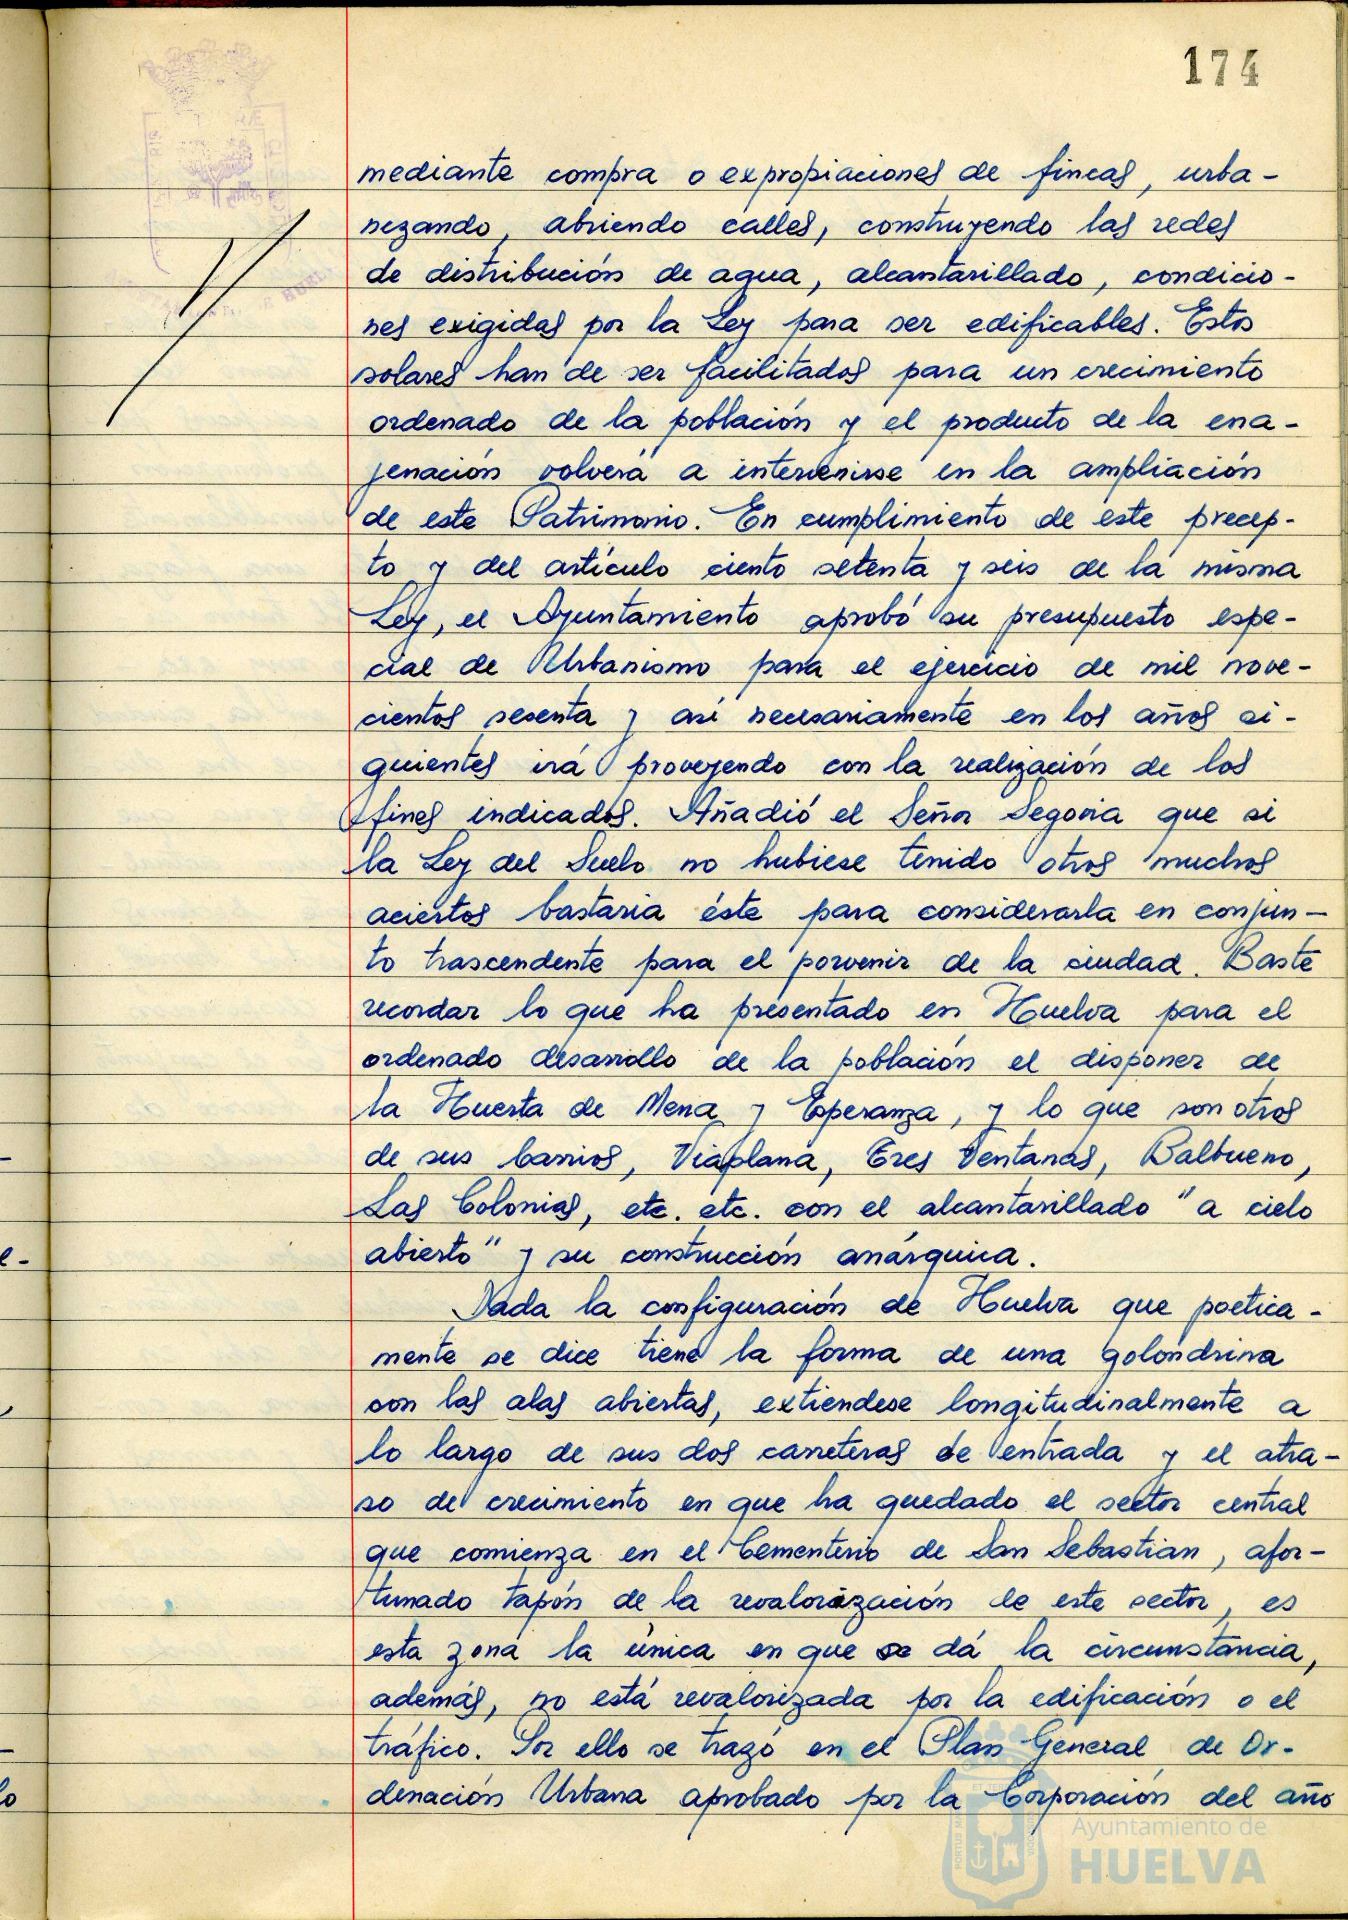 174
mediante compra o expropiaciones de fincas, urba-
nezando, abriendo calles, construyendo las redes
de distribución de agua, alcantarillado, condicio-
nes exigidas por la Ley para ser edificables. Estos
solares han de ser facilitados para un crecimiento
ordenado de la población y el producto de la ena-
jenación volverá a intervenirse en la ampliación
de este Patrimonio. En cumplimiento de este precep-
to y del artículo ciento setenta y seis de la misma
Ley, el Ayuntamiento aprobó su presupuesto espe-
cial de Urbanismo para el ejercicio de mil nove-
cientos sesenta y así necesariamente en los años si-
guientes irá proveyendo con la realización de los
fines indicados. Añadió el Señor Segovia que si
la Ley del Suelo no hubiese tenido otros muchos
aciertos bastaria éste para considerarla en conjun-
to trascendente para el porvenir de la ciudad. Baste
recordar lo que ha presentado en Huelva para el
ordenado desarrollo de la población el disponer de
la Huerta de Mena y Esperanza, y lo que son otros
de sus barrios, Viaplana, Tres Ventanas, Balbueno,
Las Colonias, etc. etc. con el alcantarillado "a cielo
abierto" y su construcción anárquica.
Dada la configuración de Huelva que poetica-
mente se dice tiene la forma de una golondrina
con las alas abiertas, extiendese longitudinalmente a
lo largo de sus dos carreteras de entrada y el atra-
so de crecimiento en que ha quedado el sector central
que comienza en el Cementerio de San Sebastian, afor-
tunado tapón de la revalorización de este sector, es
esta zona la única en que se dá la circunstancia,
además, no está revalorizada por la edificación o el
tráfico. Por ello se trazó en el Plan General de Or-
denación Urbana aprobado por la Corporación del año
Ayuntamiento de
HUELVA